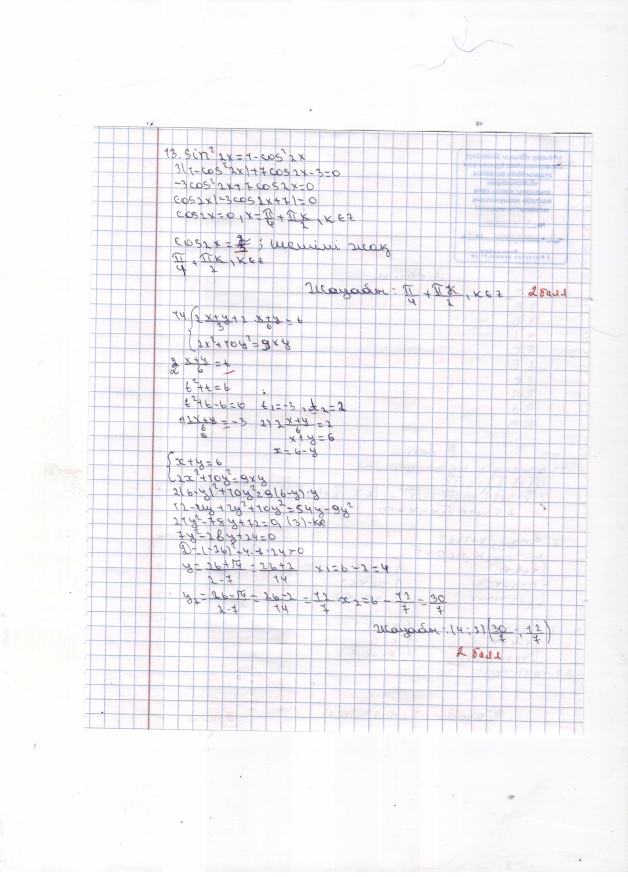 13. sin²2x=1-cos²2x
3(1-cos²2x)+7cos2x-3=0
-3cos²2x+7cos2x=0
cos2x(-3cos2x+7)=0
cos2x=0, x=π/4+πk/2, k∈z
cos2x=7/3; шешімі жақ
π/4+πk/2, k∈z
Жауабы: π/4+πk/2, k∈z 2 балл
14. {2^(x+y)/3+2^(x+y)/6=6
2x²+10y²=9xy
2^(x+y)/6=t
t²+t=6
t²+t-6=0 t₁=-3, t₂=2
1) 2^(x+y)/6=-3 2) 2^(x+y)/6=2
x+y=6
x=6-y
{x+y=6
2x²+10y²=9xy
2(6-y)²+10y²=9(6-y)·y
+2y²+10y²=54y-9y²
21y²-78y+72=0, (3)-ке
7y²-26y+24=0
D=(-26)²-4·7·24>0
=26+2/14 x₁=6-2=4
=26-2/14=12/7 x₂=6-12/7=30/7
Жауабы: (4;2)(30/7;12/7)
2 балл